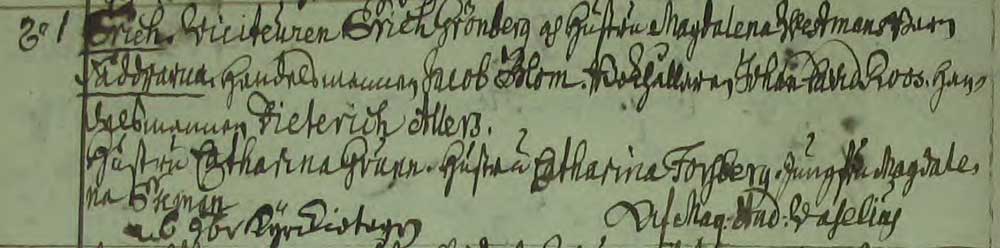 Erich. Viciteuren Erich Grönberg och Hustru Magdalena Westmans Barn
Faddrarna. Handelsmannen Jacob Blom. Bokhållaren Johan David Roos. Han-
delsmannen Dieterich Allers.
Hustru Catharina Grunn. Hustru Catharina Forsberg. Jungfru Magdale-
na Steman
af Mag. And. Vaselius